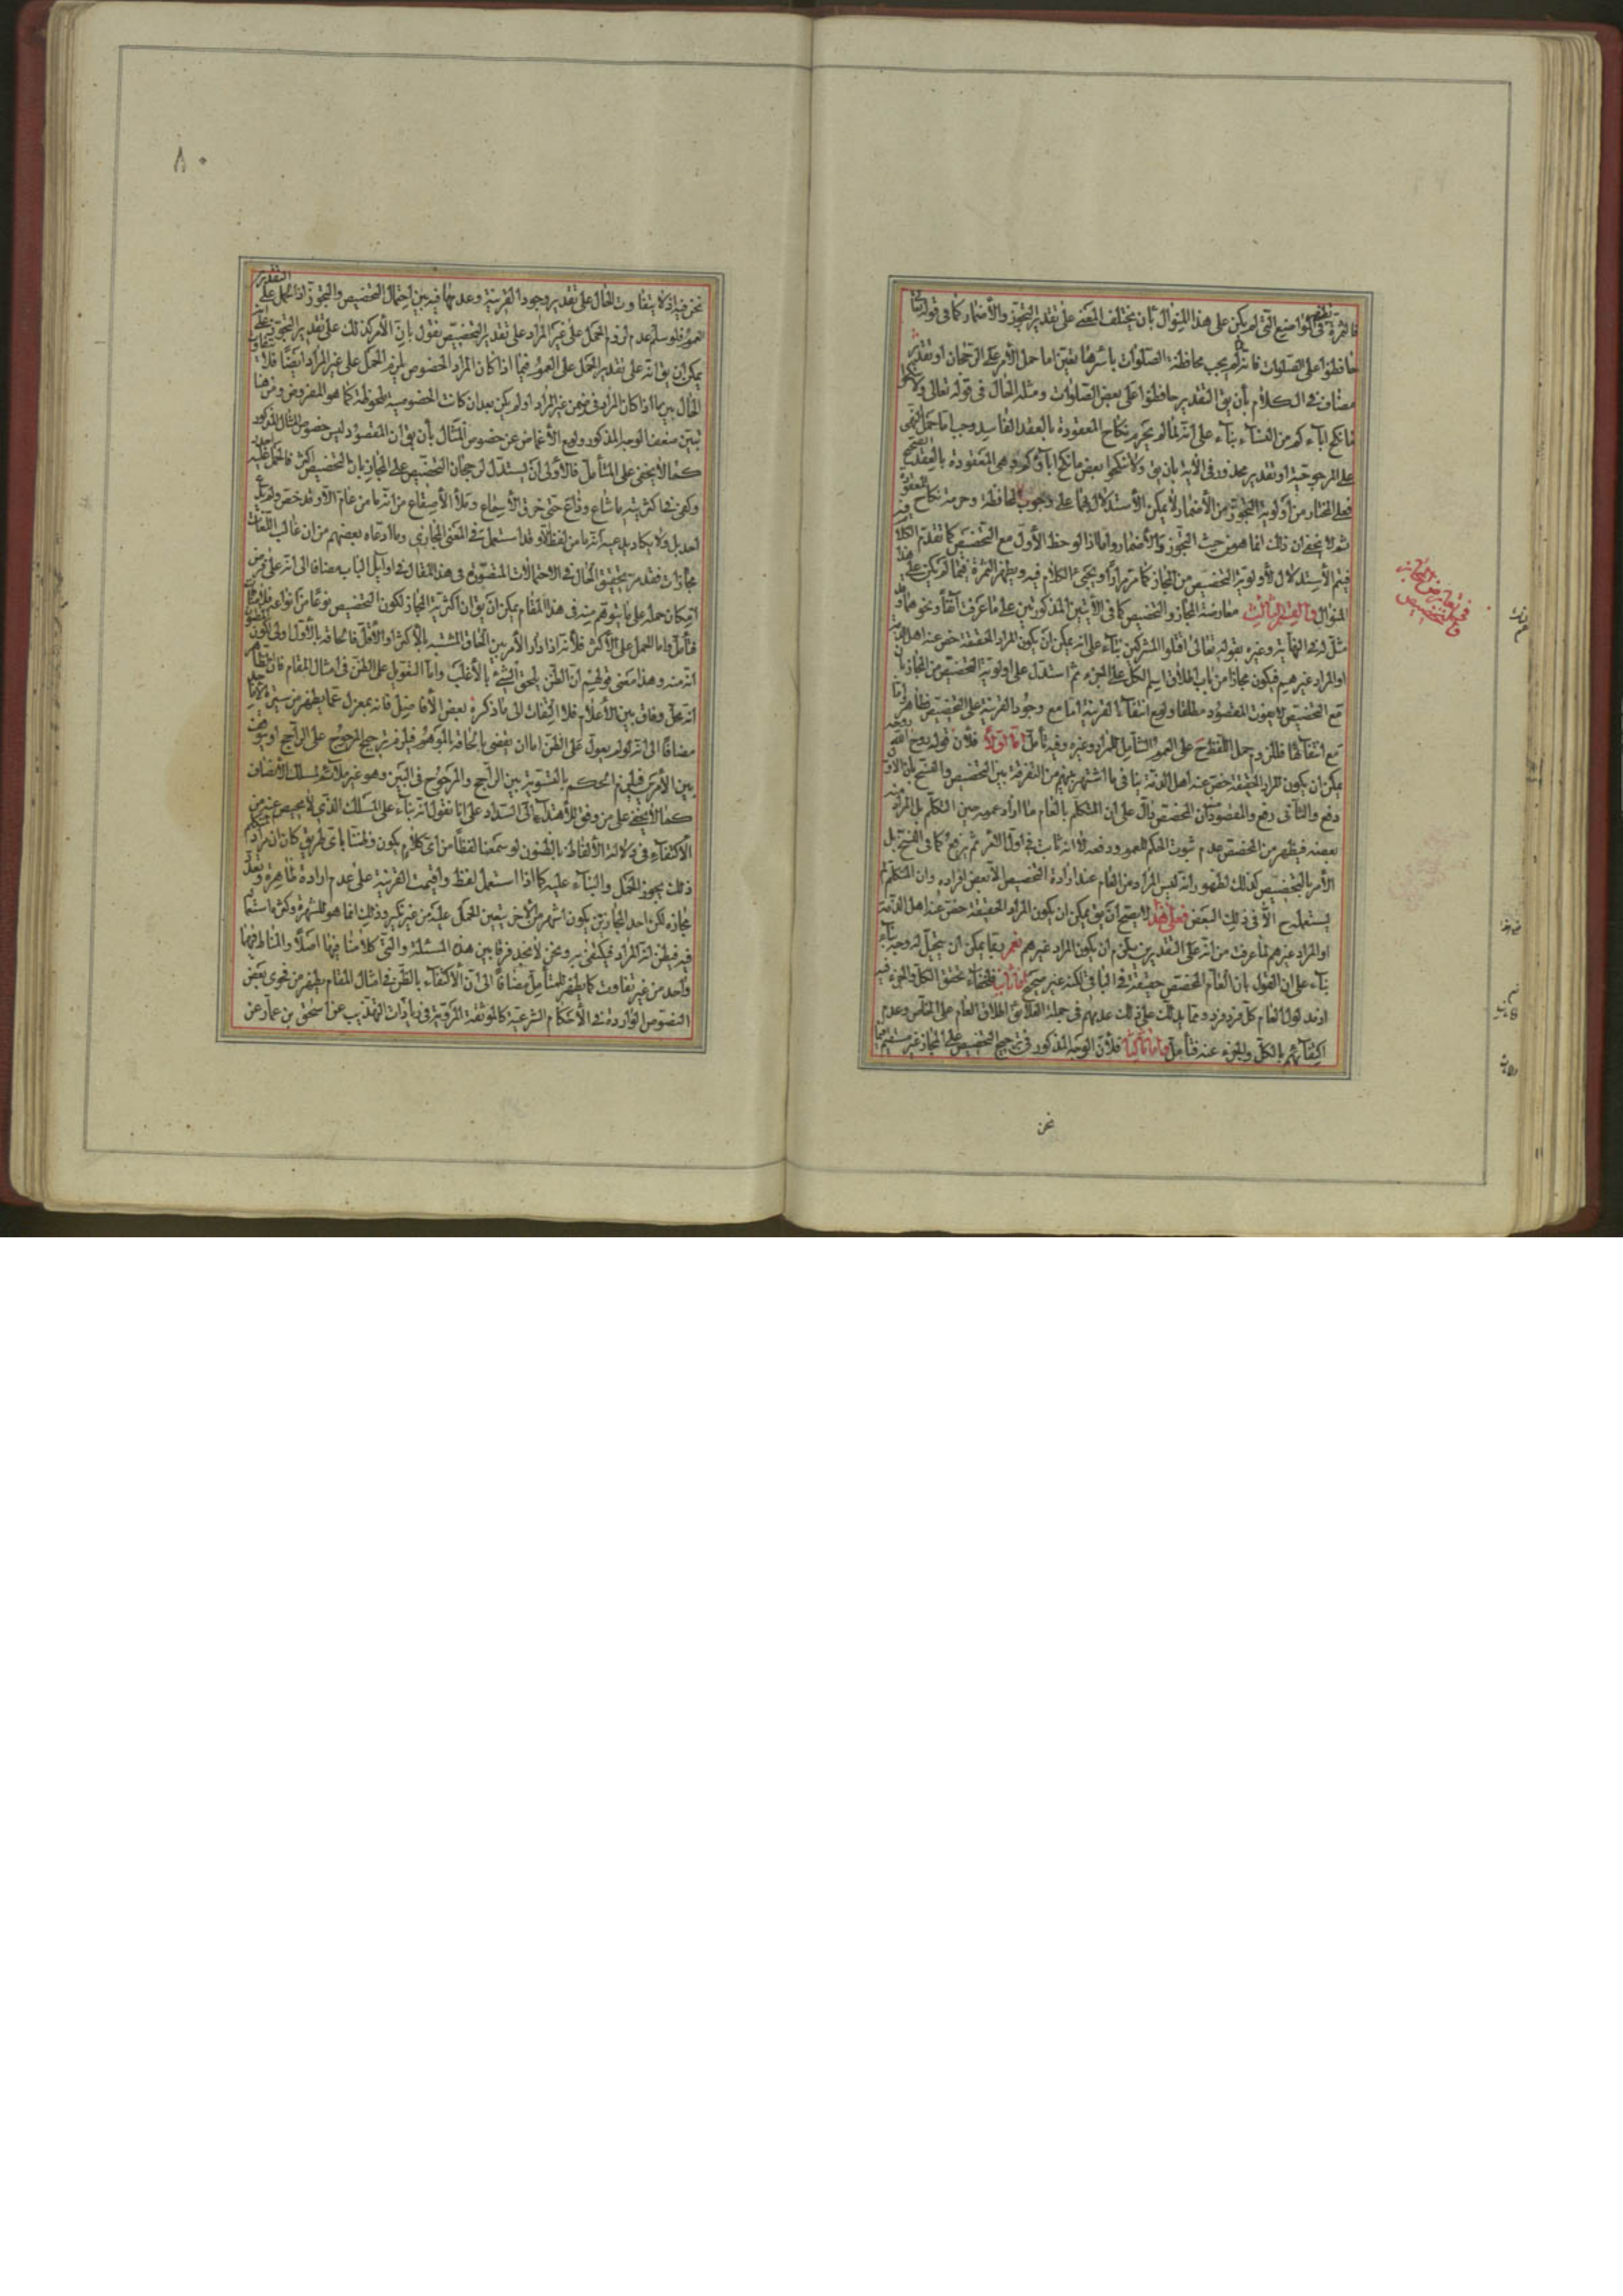 فالثمرة تظهر فى المواضع التى لم يكن على هذا المنوال بان يختلف المعنى على تقدير التجوز والأضمار كما فى قوله تعالى
حافظوا على الصلوات فانه لم يجب محافظة الصلوات باسرها يقين اما حمل الأمر على الرجحان او تقدير
مضاف فى الكلام بأن يق التقدير حافظوا على بعض الصلوات ومثله الحال فى قوله تعالى ولا تنكحوا
ما نكح اباءكم من النساء بناء على انه لما لم يحرم نكاح المعقودة بالعقد الفاسد وجب اما حمل النهى
على المرجوحية او تقدير محذور فى الاية بان يق ولا تنكحوا بعض ما نكح اباؤكم وهى المعقودة بالعقد الصحيح
فعلى المختار من أولوية التجوز من الأضمار لا يمكن الأستدلال بهما على وجوب المحافظة وحرمة نكاح المعقودة
ثم لا يخفى ان ذلك انما هو من حيث التجوز والأضمار واما اذا لوحظ الأول مع التخصيص كما تقدم الكلام فيه
فيتم الأستدلال لأولوية التخصيص من المجاز كما مر مرارا ويجئ الكلام فيه ويظهر الثمرة فيما لم يكن على هذا
المنوال والقسم الثالث معارضة المجاز والتخصيص كما فى الأيتين المذكورتين على ما عرفت آنفا ونحوهما وقد
مثل له فى النهاية وغيره بقوله تعالى اقتلوا المشركين بناء على انه يمكن ان يكون المراد الحقيقة خص عنه اهل الذمة
او المراد غيرهم فيكون مجازا من باب اطلاق اسم الكل على الجزء ثم استدل على اولوية التخصيص من المجاز بان
مع التخصيص لا يفوت المقصود مطلقا ولو مع انتفاء القرينة اما مع وجود القرينة على التخصيص فظاهر واما
مع انتفائها فللزوم حمل اللفظ ح على العموم الشامل للمراد وغيره وفيه تأمل اما اولا فلان قوله روح الله روحه
يمكن ان يكون المراد الحقيقة خص عنه اهل الذمة ينافى ما اشتهر بينهم من التفرقة بين التخصيص والنسخ بان الاول
دفع والثانى رفع والمقصود ان المخصص دال على ان المتكلم بالعام ما اراد عمومه حين التكلم بل المراد منه
بعضه فيظهر من المخصص عدم ثبوت الحكم للعموم ودفعه لا انه ثابت فى اول الأمر ثم يرفع كما فى النسخ بل
الأمر بالتخصيص كذلك لظهور انه ليس المراد من العام عند ارادة التخصيص الا بعض افراده وان المتكلم لم
يستعمله ح الا فى ذلك البعض فعلى هذا لا يصح ان يق يمكن ان يكون المراد الحقيقة خص عنه اهل الذمة
او المراد غيرهم لما عرفت من انه على التقديرين يلزم ان يكون المراد غيرهم نعم ربما يمكن ان يتخيل له وجه بناء
بناء على ان القول بان العام المخصص حقيقة فى الباقى لكنه غير صحيح واما ثانيا فلخفاء تحقق الكل والجزء فيه
اذ مدلول العام كل فرد فرد ومما يدلك على ذلك عدهم فى جملة العلائق اطلاق العام على الخاص وعدم
اكتفائهم بالكل والجزء عنه فتأمل واما ثالثا فلأن الوجه المذكور فى ترجيح التخصيص على المجاز غير مستقيم فيما
نحن
فى تعارض المجاز
والتخصيص
٨٠
نحن فيه اذ لا يتفاوت الحال على تقدير وجود القرينة وعدمها فيه بين احتمال التخصيص والتجوز اذ الحمل على التقدير
العموم فلو سلم عدم لزوم الحمل على غير المراد على تقدير التخصيص نقول بان الأمر كذلك على تقدير التجوز
يمكن ان يق انه على تقدير الحمل على العموم فيما اذا كان المراد الخصوص لزم الحمل على غير المراد ايضا فلا يتفاوت
الحال بين ما اذا كان المراد فى ضمن غير المراد او لم يكن بعد ان كانت الخصوصية ملحوظة كما هو المفروض ومن هنا
تبين ضعف الوجه المذكور ولو مع الأغماض عن خصوص المثال بأن يق ان المقصود ليس خصوص المثال المذكور
كما لا يخفى على المتأمل فالأولى ان يستدل لرجحان التخصيص على المجاز بان التخصيص اكثر فالحمل عليه
وكفى فى اكثريته ما شاع وذاع حتى خرق الأسماع وملأ الأصقاع من انه ما من عام الا وقد خص ولم يدع
احد بل ولا يكاد يدعيه انه ما من لفظ الا وقد استعمل فى المعنى المجازى وما ادعاه بعضهم من ان غالب اللغات
مجازات فقد مر تحقيق الحال فى الاحتمالات المتصورة فى هذا المقال فى اوايل الباب مضافا الى انه على فرض
امكان حمله على ما يتوهم منه فى هذا المقام يمكن ان يق ان اكثرية المجاز لكون التخصيص نوعا من انواعه
فتأمل واما الحمل على الأكثر فلأنه اذا دار الأمر بين الحاق المشتبه بالاكثر او الأقل فالحاقه بالأول اولى لكون المظنون
انه منه وهذا معنى قولهم ان الظن يلحق الشئ بالأغلب واما التعويل على الظن فى امثال المقام فان الظاهر
انه محل وفاق بين الأعلام فلا التفات الى ما ذكره بعض الأفاضل فانه بمعزل عما يظهر من سيرة
مضافا الى انه لو لم يعول على الظن اما ان يقضى بالحاقه بالموهوم فيلزم ترجيح المرجوح على الراجح او يتوقف
بين الأمرين فيلزم الحكم بالتسوية بين الراجح والمرجوح فى البين وهو غير ملائم لمسلك الأنصاف
كما لا يخفى على من وفق للأهتداء الى السداد على انا نقول انه بناء على المسلك الذى لا محيص عنه من
الأكتفاء فى دلالة الألفاظ بالظنون لو سمعنا لفظا من اى كلام يكون وظننا باى طريق كان ان مراد المتكلم
ذلك يجوز الحمل والبناء عليه كما اذا استعمل لفظ واقيمت القرينة على عدم ارادة ظاهره وتعدد
مجازه لكن احد المجازين يكون اشهر من الاخر يتعين الحمل عليه من غير نكير وذلك انما هو للشهرة وكثرة استعماله
فيه فيظن انه المراد فيكتفى به ونحن لا نجد فرقا بين هذه المسئلة والتى كلامنا فيها اصلا والمناط فيهما
واحد من غير تفاوت كما يظهر للمتأمل مضافا الى ان الأكتفاء بالظن فى امثال المقام يظهر من فحوى بعض
النصوص الواردة فى الأحكام الشرعية كالموثقة المروية فى زيادات التهذيب عن اسحق بن عمار عن